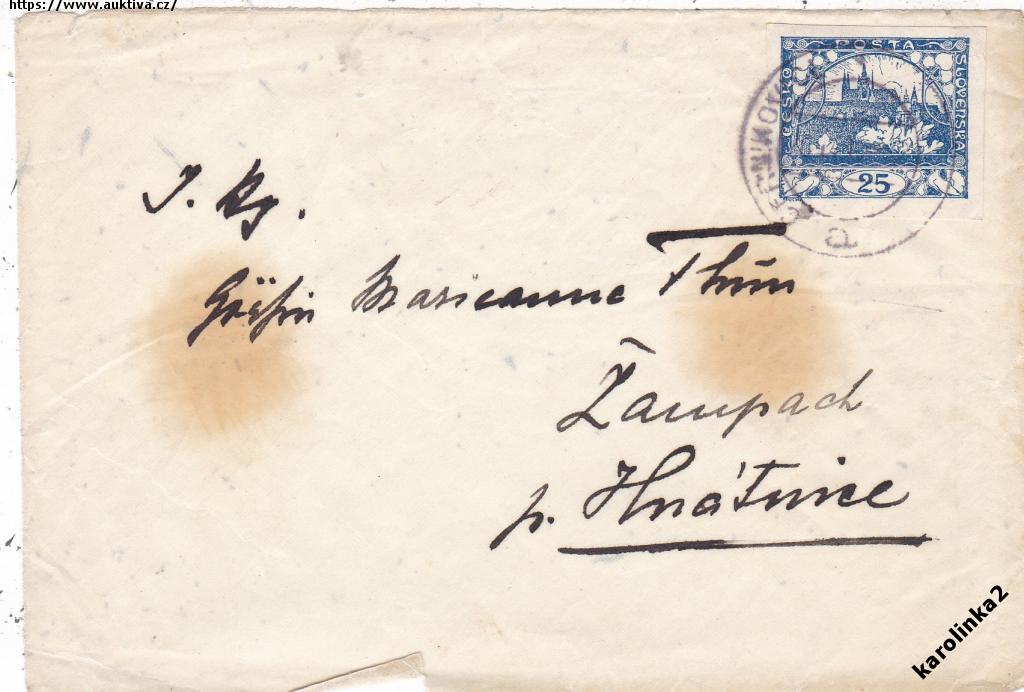 https://www.auktiva.cz/
POSTA
ČESKO
SLOVENSKÁ
25
J. Hg.
Gräfin Marieanne Thun
Žampach
p. Hnátnice
karolinka2